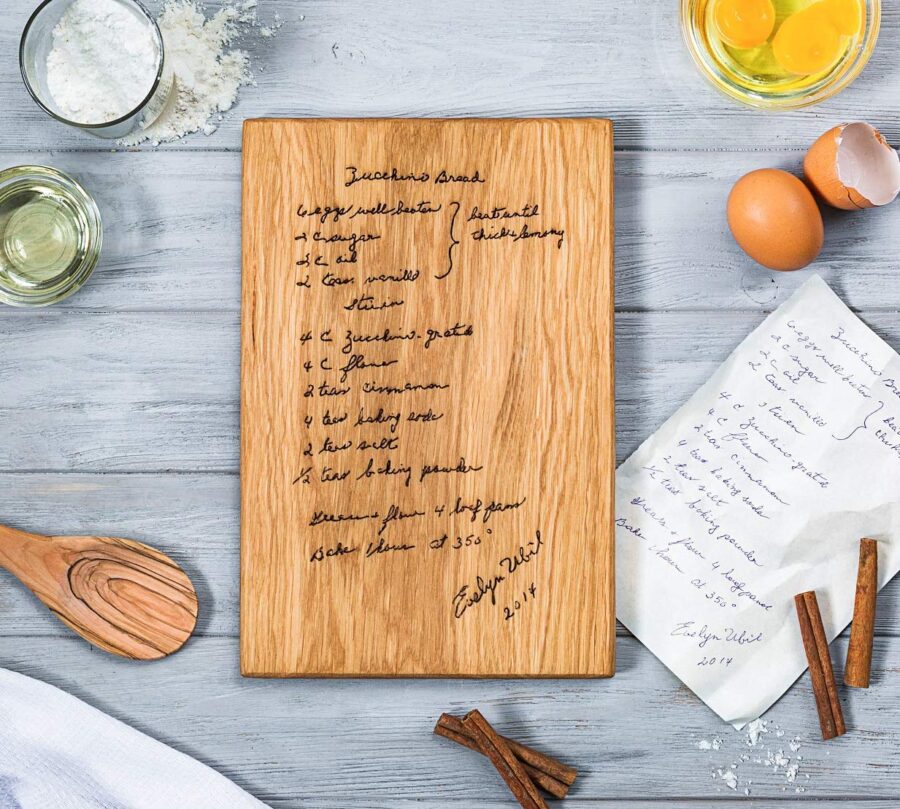 Zucchini Bread
6 eggs well beaten
2 C sugar
2 C oil
2 teas vanilla
beat until
thick & lemony
Stir in
4 C Zucchini-grated
4 C flour
2 teas cinnamon
4 teas baking soda
2 teas salt
1/2 teas baking powder
Grease & flour 4 loaf pans
Bake 1 hour at 350°
Evelyn Ubil
2014
Zucchini Bread
6 eggs well beaten
2 C sugar
2 C oil
2 teas vanilla
Stir in
4 C Zucchini-grated
4 C flour
2 teas cinnamon
4 teas baking soda
2 teas salt
1/2 teas baking powder
Grease & flour 4 loaf pans
Bake 1 hour at 350°
Evelyn Ubil
2014